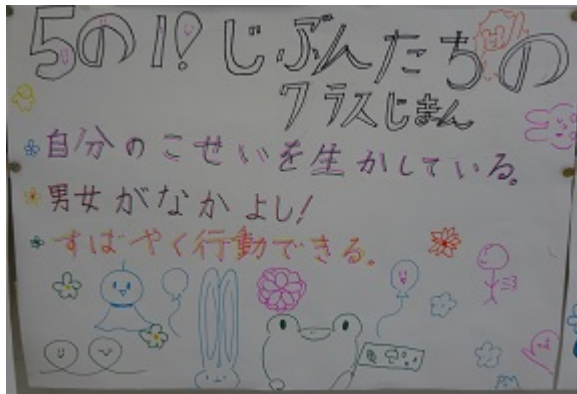 5の1!じぶんたちの
クラスじまん
自分のこせいを生かしている。
男女がなかよし!
すばやく行動できる。